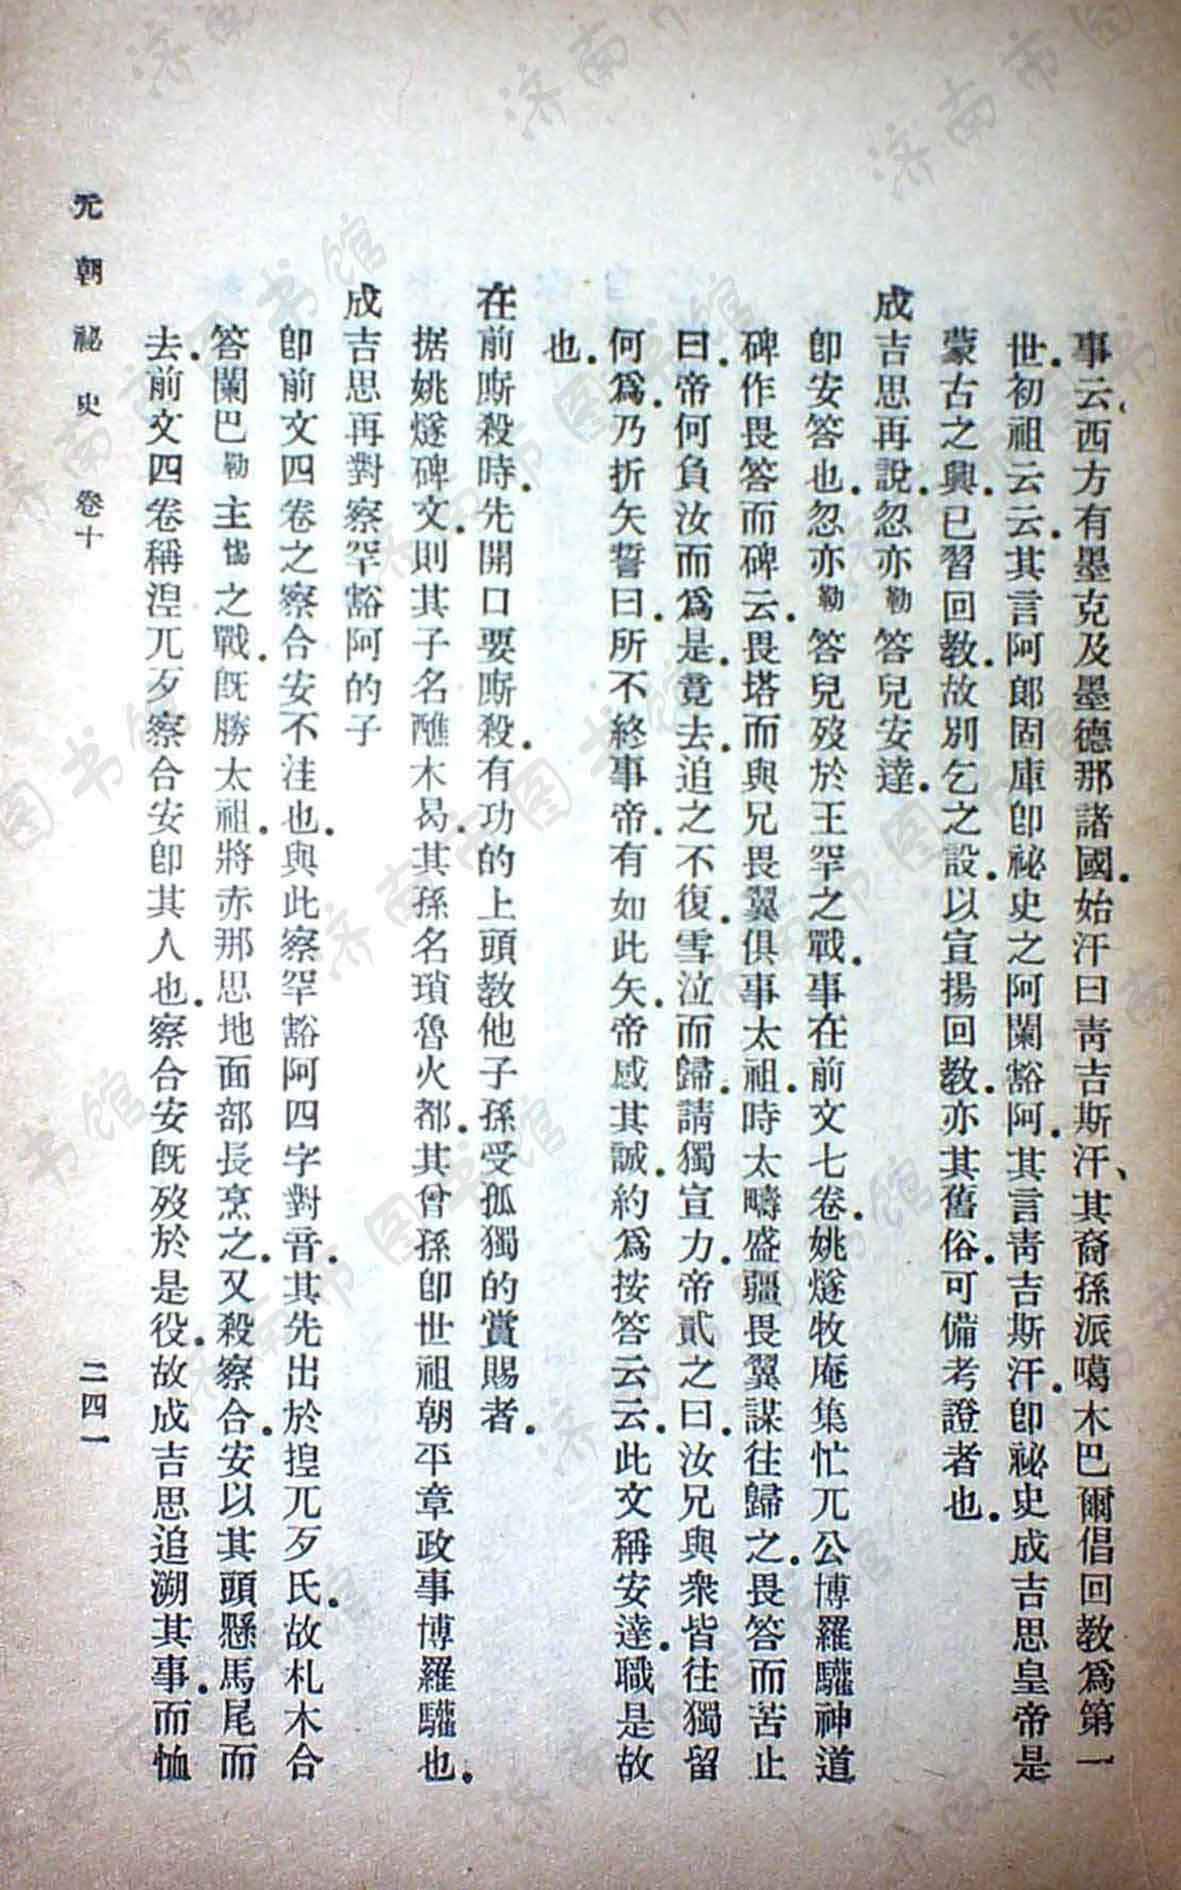 事云、西方有墨克及墨德那諸國。始汗曰靑吉斯汗、其裔孫派噶木巴爾倡回教爲第一
世初祖云云。其言阿郞固庫卽祕史之阿闌豁阿。其言靑吉斯汗。卽祕史成吉思皇帝是
蒙古之興。已習回教。故別乞之設。以宣揚回教。亦其舊俗。可備考證者也。
成吉思再說。忽亦勒答兒安達。
卽安答也。忽亦勒答兒歿於王罕之戰。事在前文七卷。姚燧牧庵集忙兀公博羅驩神道
碑作畏答而碑云。畏塔而與兄畏翼俱事太祖。時太疇盛疆畏翼謀往歸之。畏答而苦止
曰。帝何負汝而爲是。竟去。追之不復。雪泣而歸。請獨宣力。帝貳之曰。汝兄與衆皆往獨留
何爲。乃折矢誓曰。所不終事帝。有如此矢。帝感其誠。約爲按答云云。此文稱安達。職是故
也。
在前廝殺時。先開口要廝殺。有功的上頭教他子孫受孤獨的賞賜者。
据姚燧碑文。則其子名醮木曷。其孫名瑣魯火都。其曾孫卽世祖朝平章政事博羅驩也。
成吉思再對察罕豁阿的子
卽前文四卷之察合安不洼也。與此察罕豁阿四字對音。其先出於捏兀歹氏。故札木合
答闌巴勒主惕之戰。旣勝太祖。將赤那思地面部長烹之。又殺察合。安以其頭懸馬尾而
去。前文四卷稱湼兀歹察合安卽其人也。察合安旣歿於是役。故成吉思追溯其事。而恤
元朝祕史 卷十
二四一
济南市图书馆